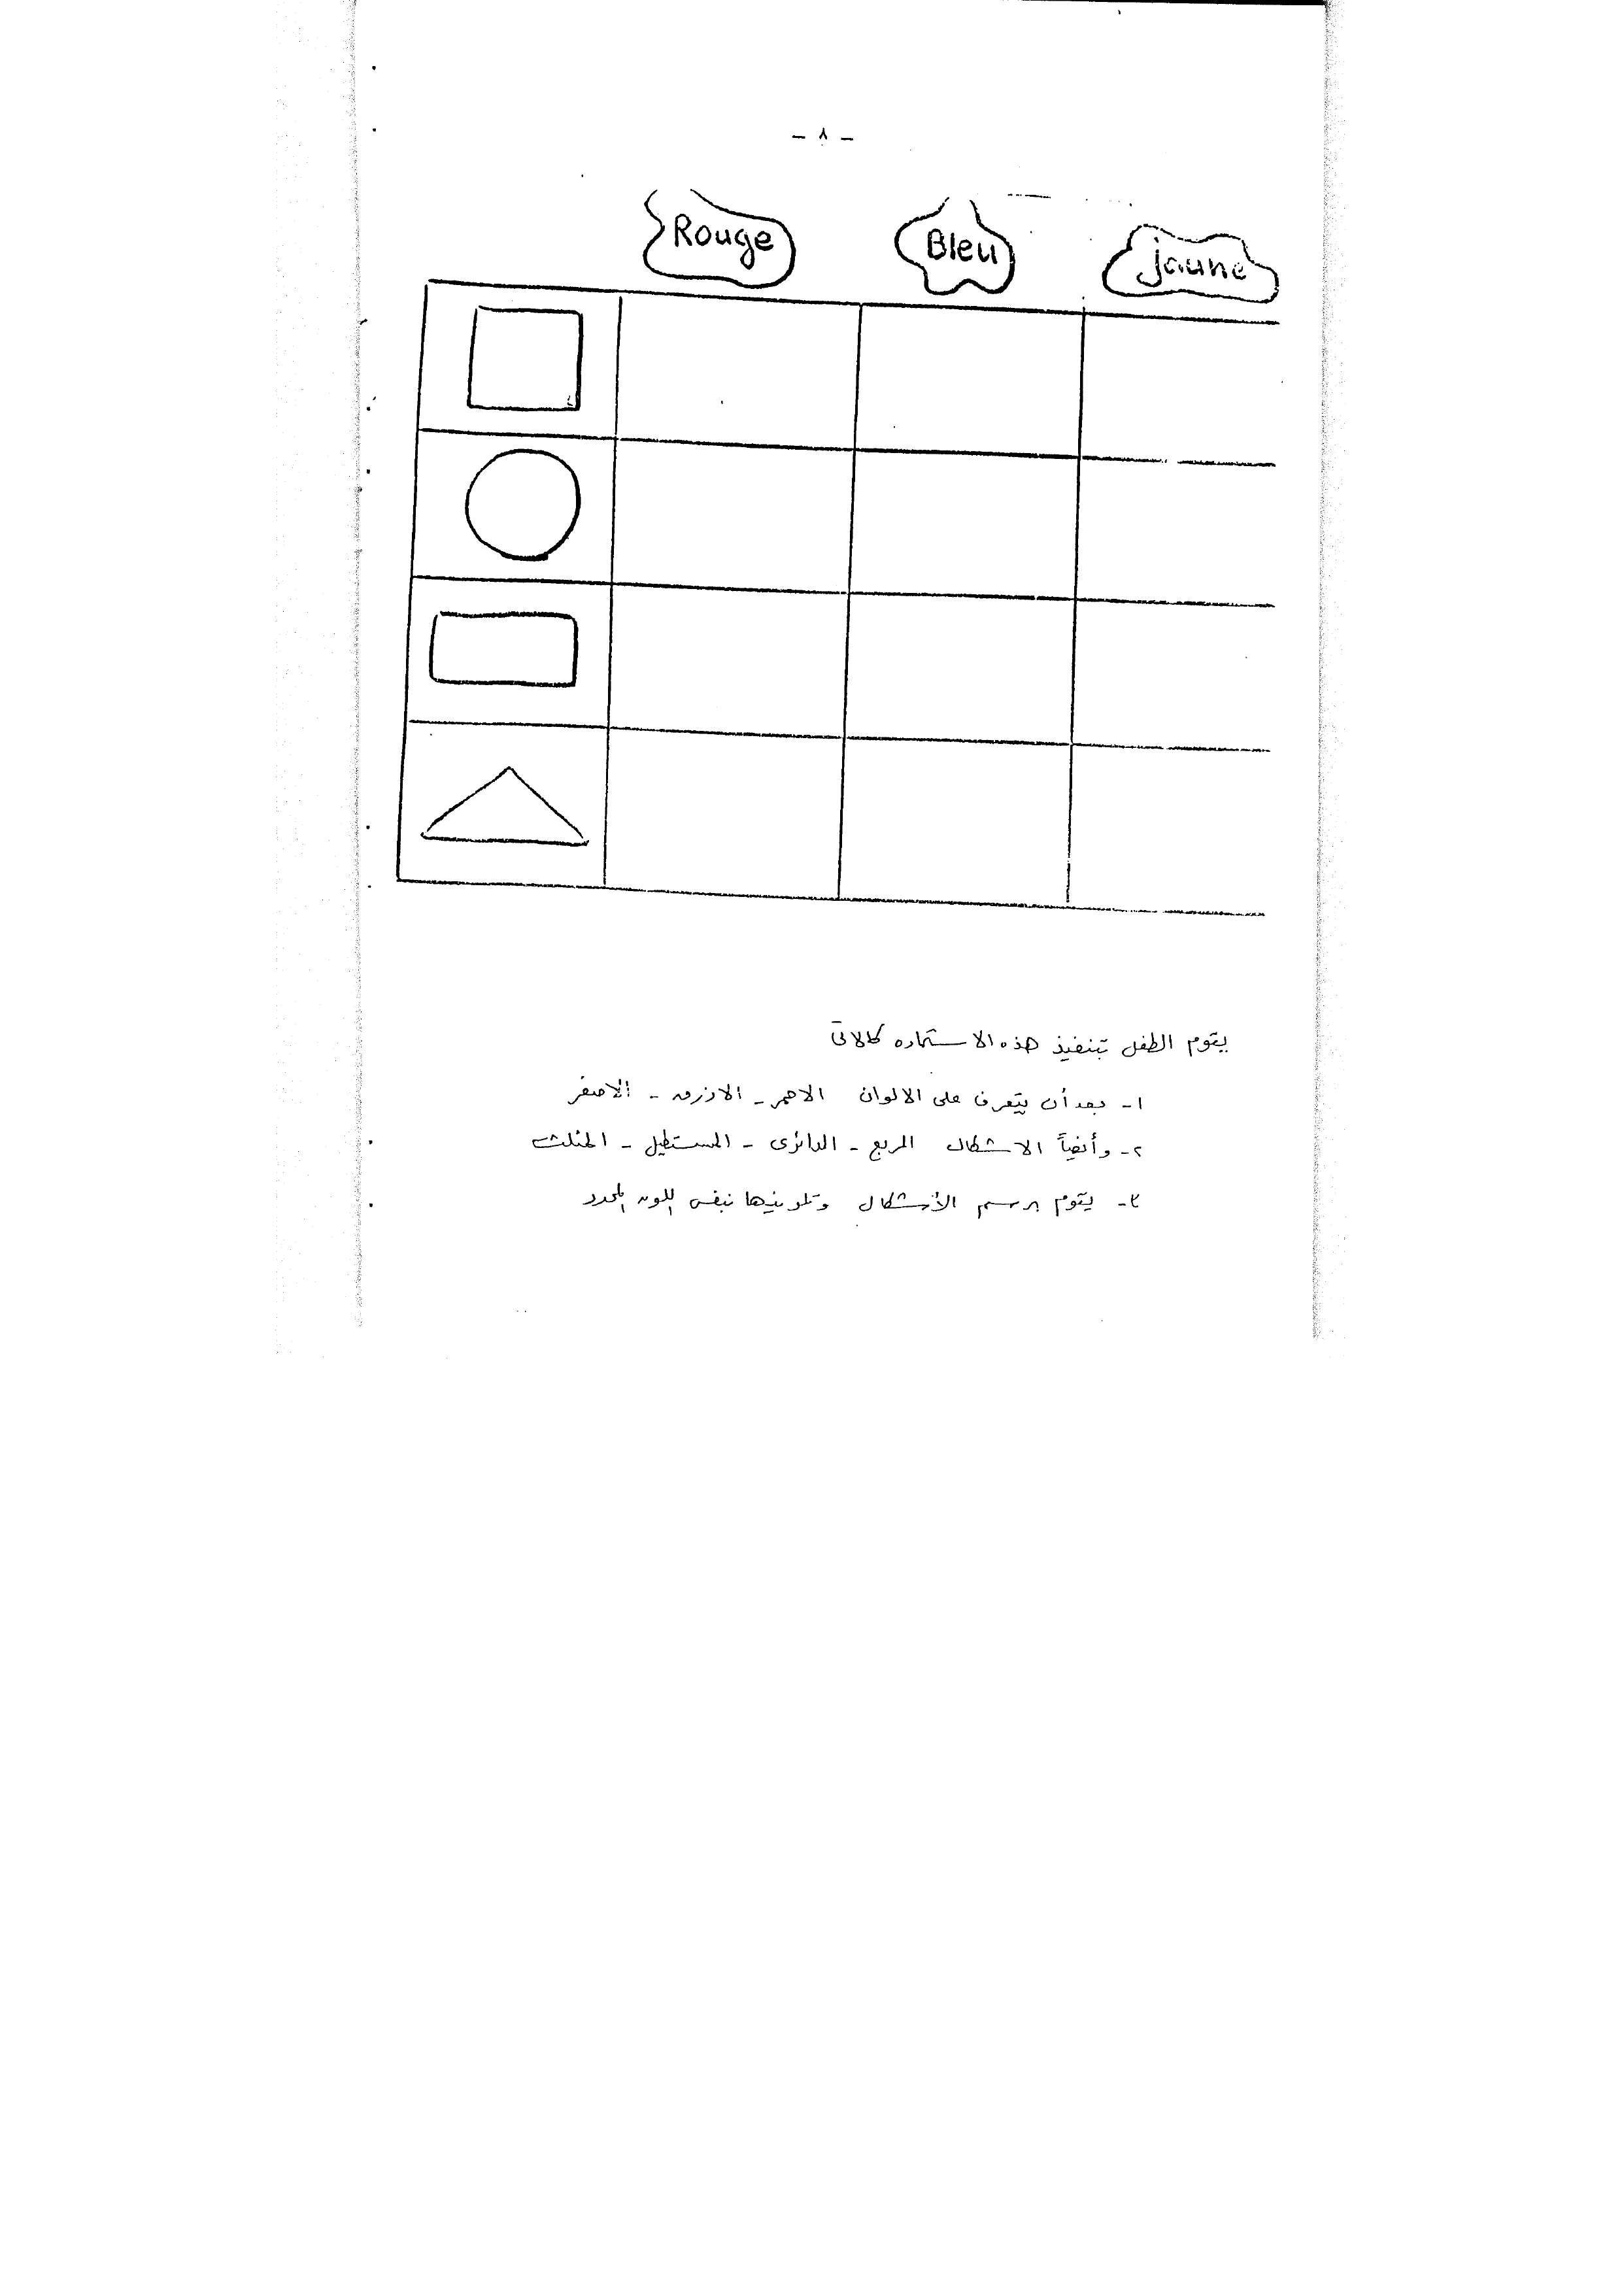 - ٨ -
Rouge Bleu jaune
يقوم الطفل بتنفيذ هذه الاستماره كالاتى
١- بعد أن يتعرف على الالوان الاحمر - الازرق - الاصفر
٢- وأيضاً الاشكال المربع - الدائرى - المستطيل - المثلث
٣- يقوم برسم الأشكال وتلوينها بنفس اللون المحدد